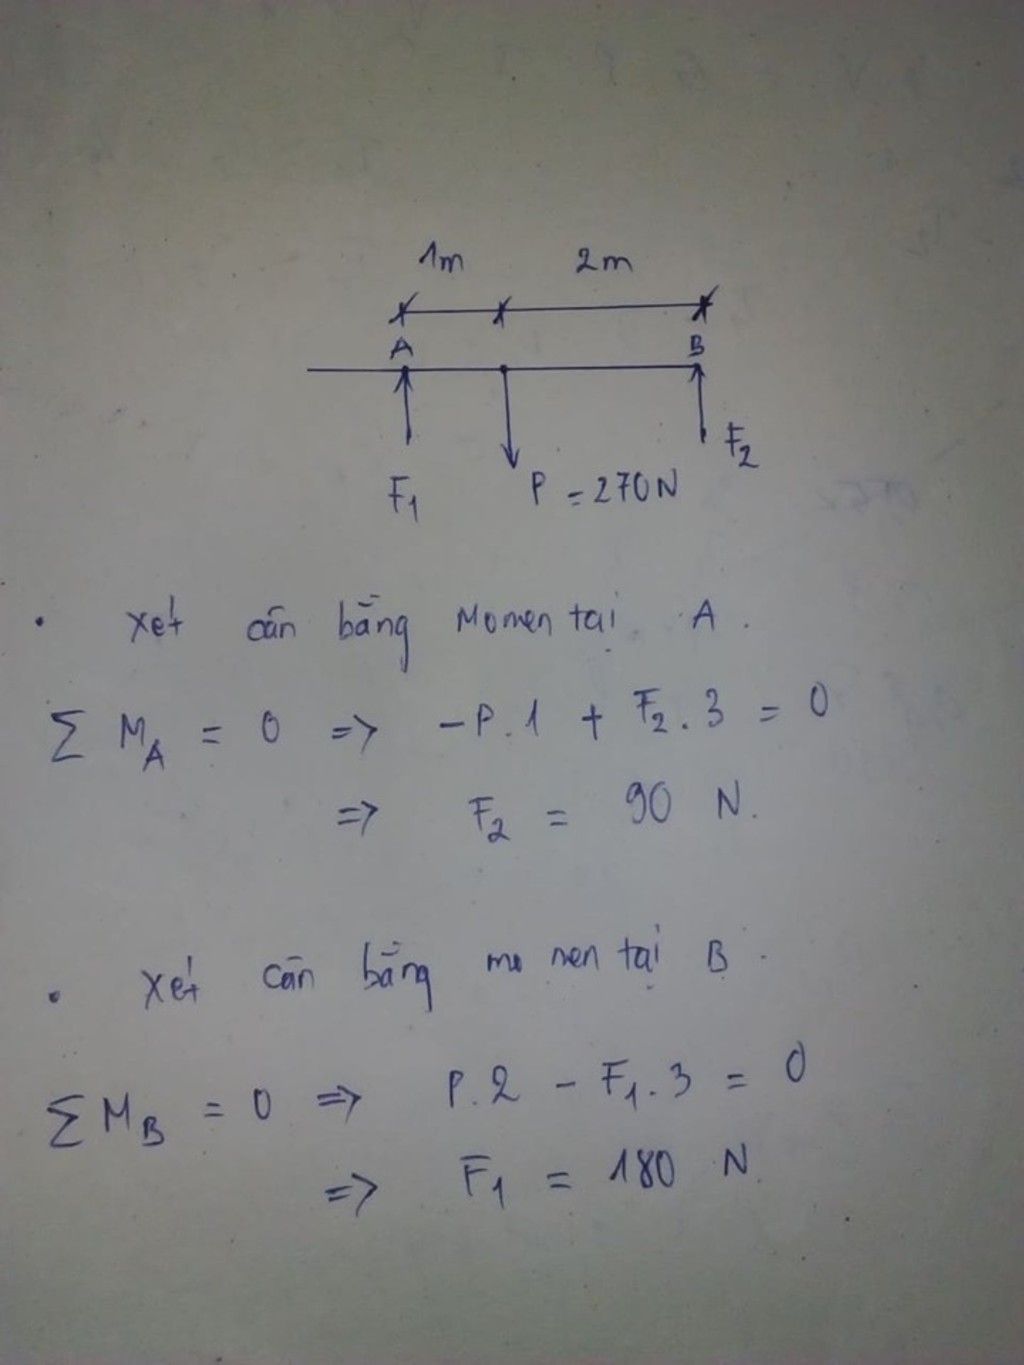 1m 2m
A B
F₁ P = 270N F₂
• Xét cân bằng Momen tại A.
∑ M_A = 0 => -P.1 + F₂.3 = 0
=> F₂ = 90 N.
• Xét cân bằng mo men tại B.
∑ M_B = 0 => P.2 - F₁.3 = 0
=> F₁ = 180 N.